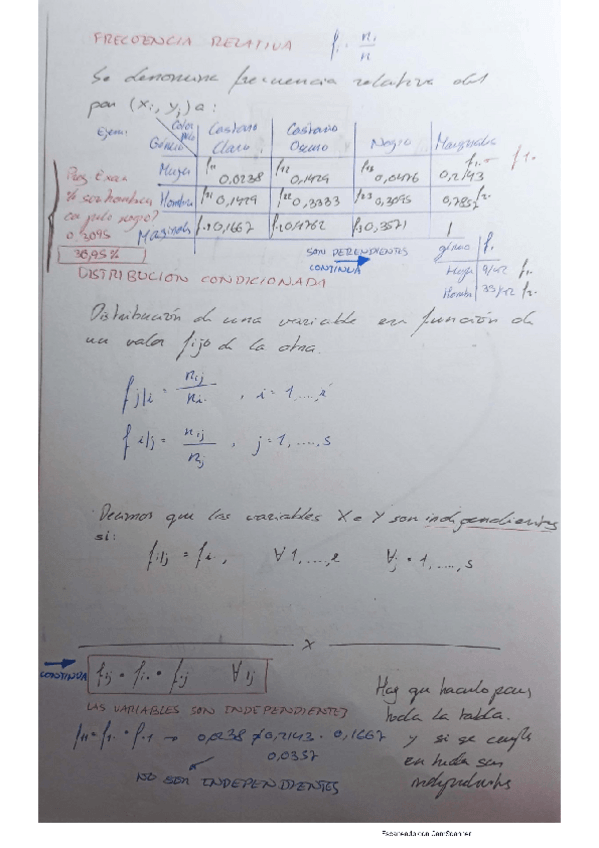 FRECUENCIA RELATIVA fi = ni/n
Se denomina frecuencia relativa del
par (xi, yj) a:
Ejem: Género Color pelo Castaño Claro Castaño Oscuro Negro Marginales
Mujer f11 0,0238 f12 0,1429 f13 0,0476 0,2143 f1.
Hombre f21 0,1429 f22 0,3333 f23 0,3095 0,7857 f2.
Marginales f.1 0,1667 f.2 0,4762 f.3 0,3571 1
Preg. Exam
% son hombres
con pelo negro?
0,3095
30,95 %
SON DEPENDIENTES
CONTINUA
género fi.
Mujer 9/42 f1.
Hombre 33/42 f2.
DISTRIBUCIÓN CONDICIONADA
Distribución de una variable en función de
un valor fijo de la otra.
fj|i = nij/ni. , i = 1,...,r
fi|j = nij/nj , j = 1,...,s
Decimos que las variables X e Y son independientes
si:
fi|j = fi. , ∀ 1,...,r ∀j = 1,...,s
X
CONTINUA fij = fi. • f.j ∀ ij
LAS VARIABLES SON INDEPENDIENTES
f11 = f1. • f.1 → 0,0238 ≠ 0,2143 · 0,1667
0,0357
NO SON INDEPENDIENTES
Hay que hacerlo para
toda la tabla.
y si se cumple
en toda son
independientes
Escaneado con CamScanner